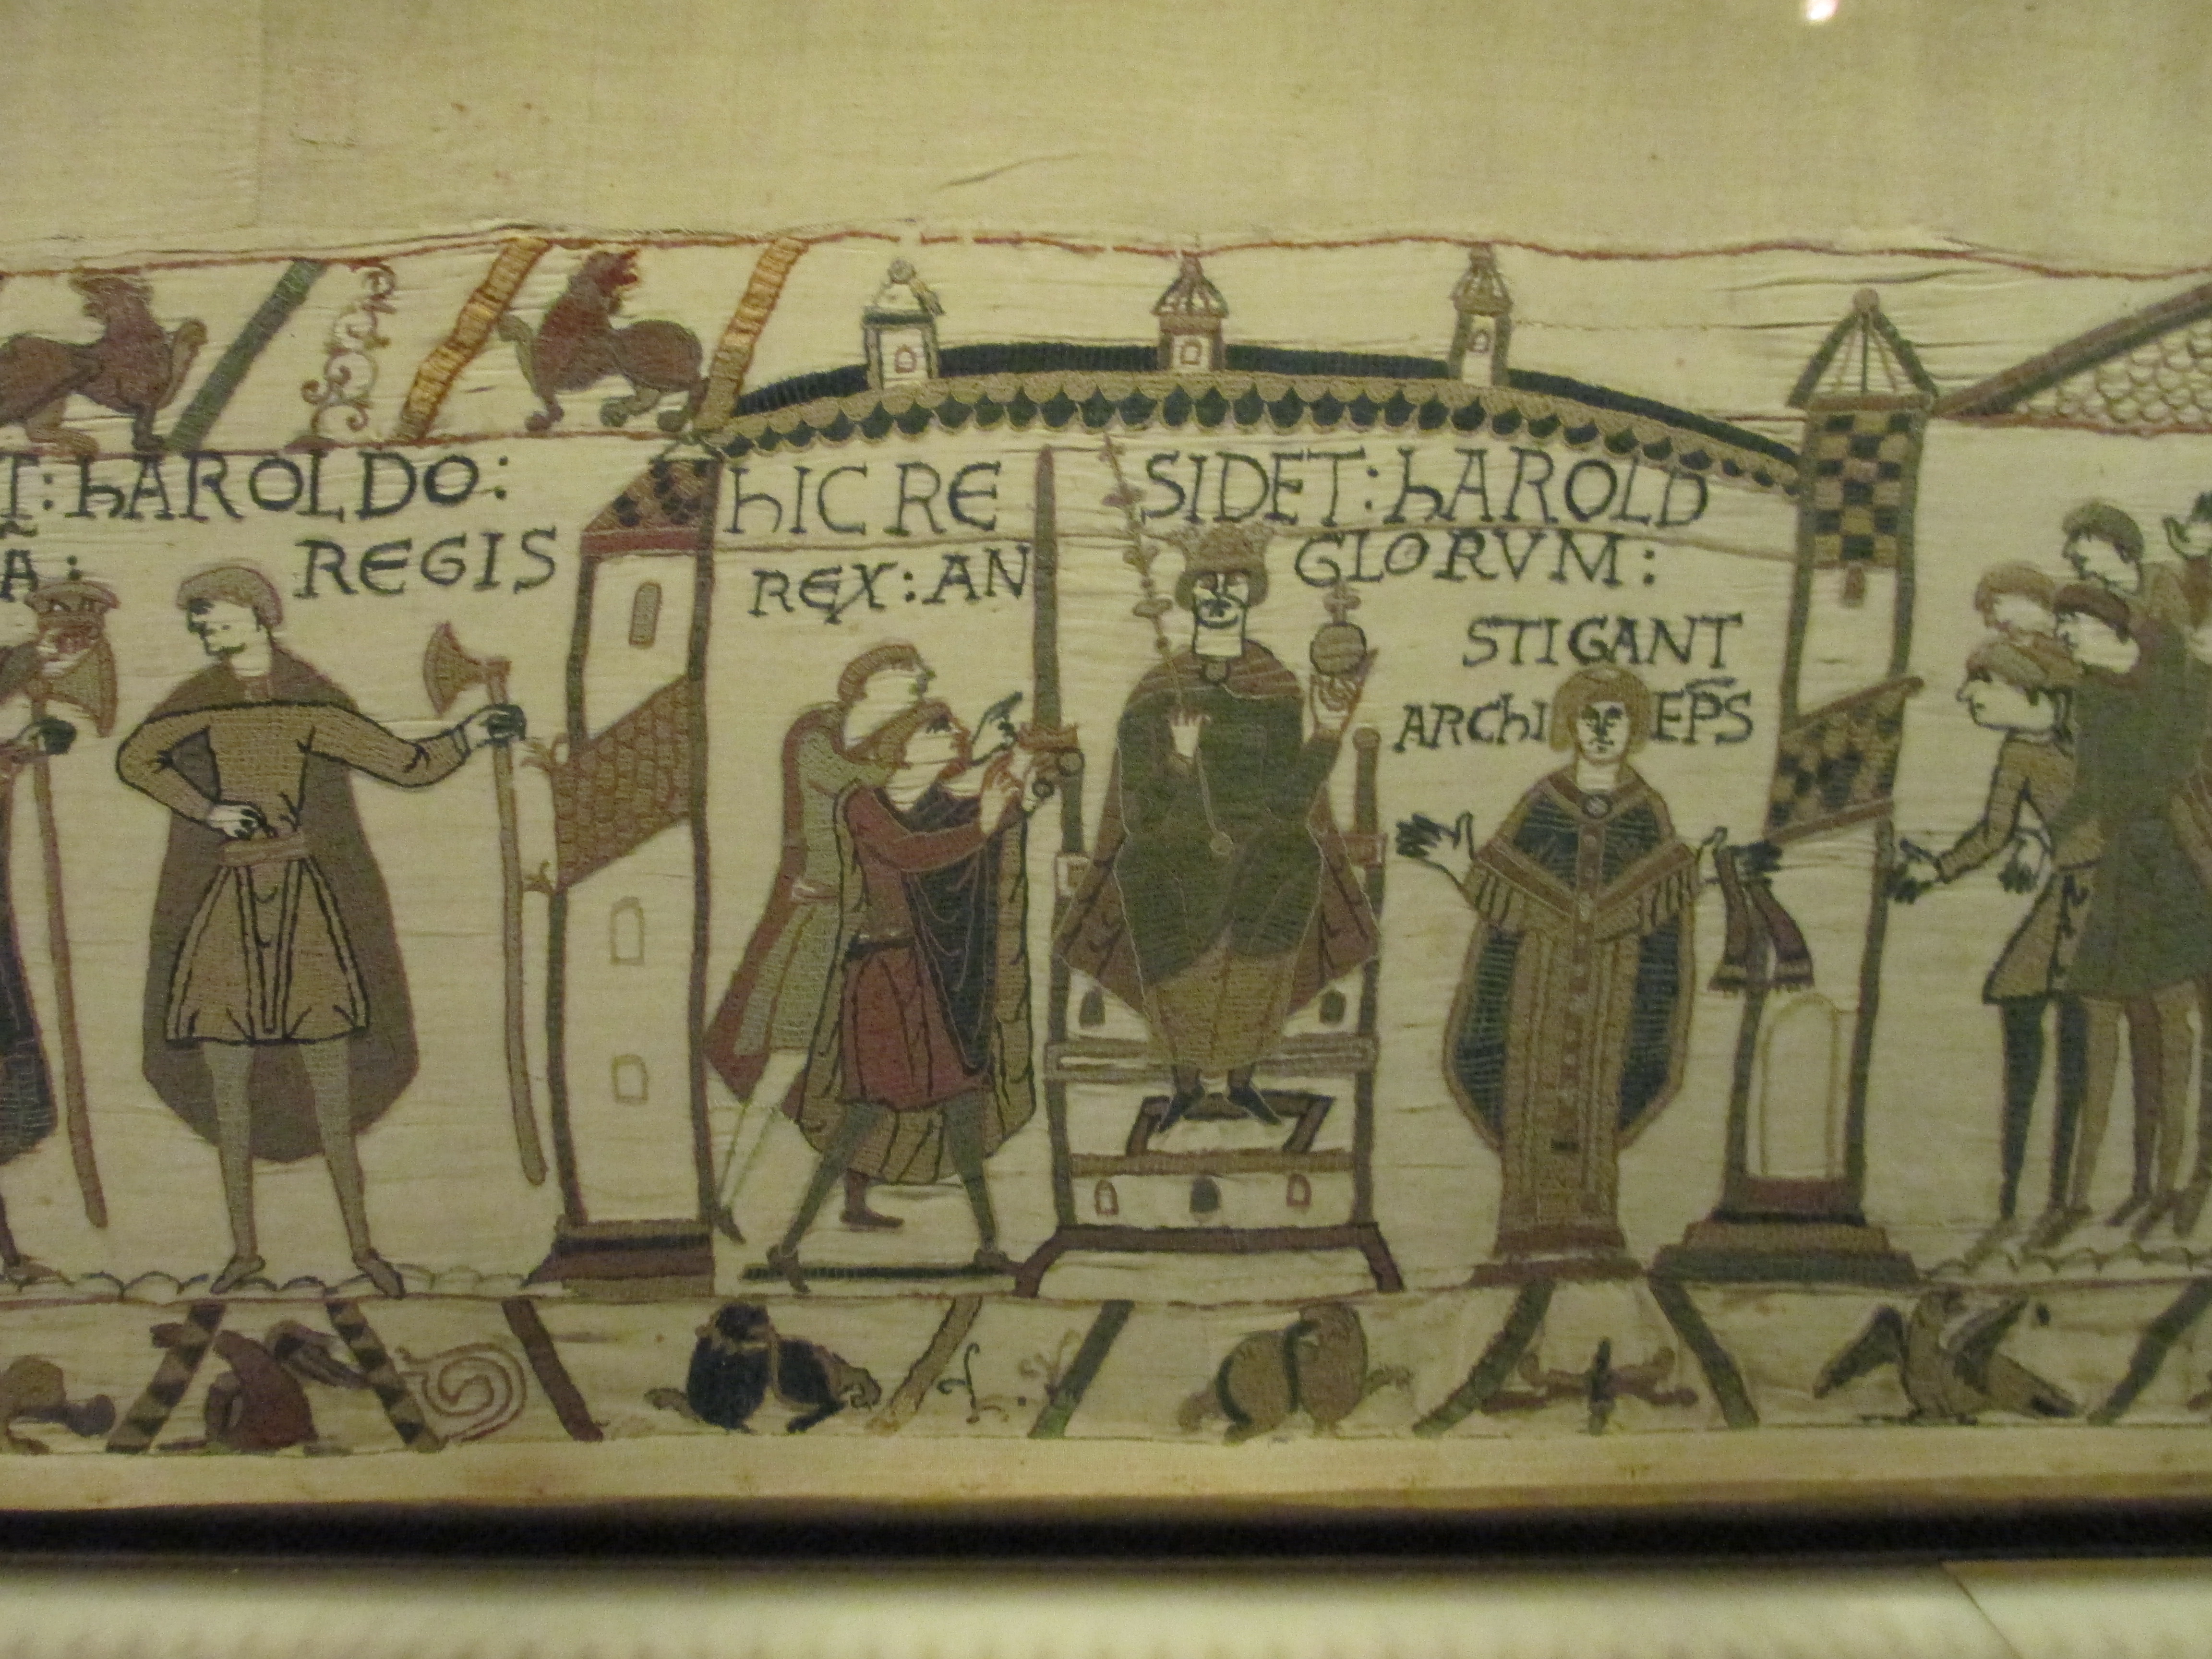 T: hAROLDO:
A: REGIS
hIC RESIDET: hAROLD
REX: ANGLORVM:
STIGANT
ARChIEPS